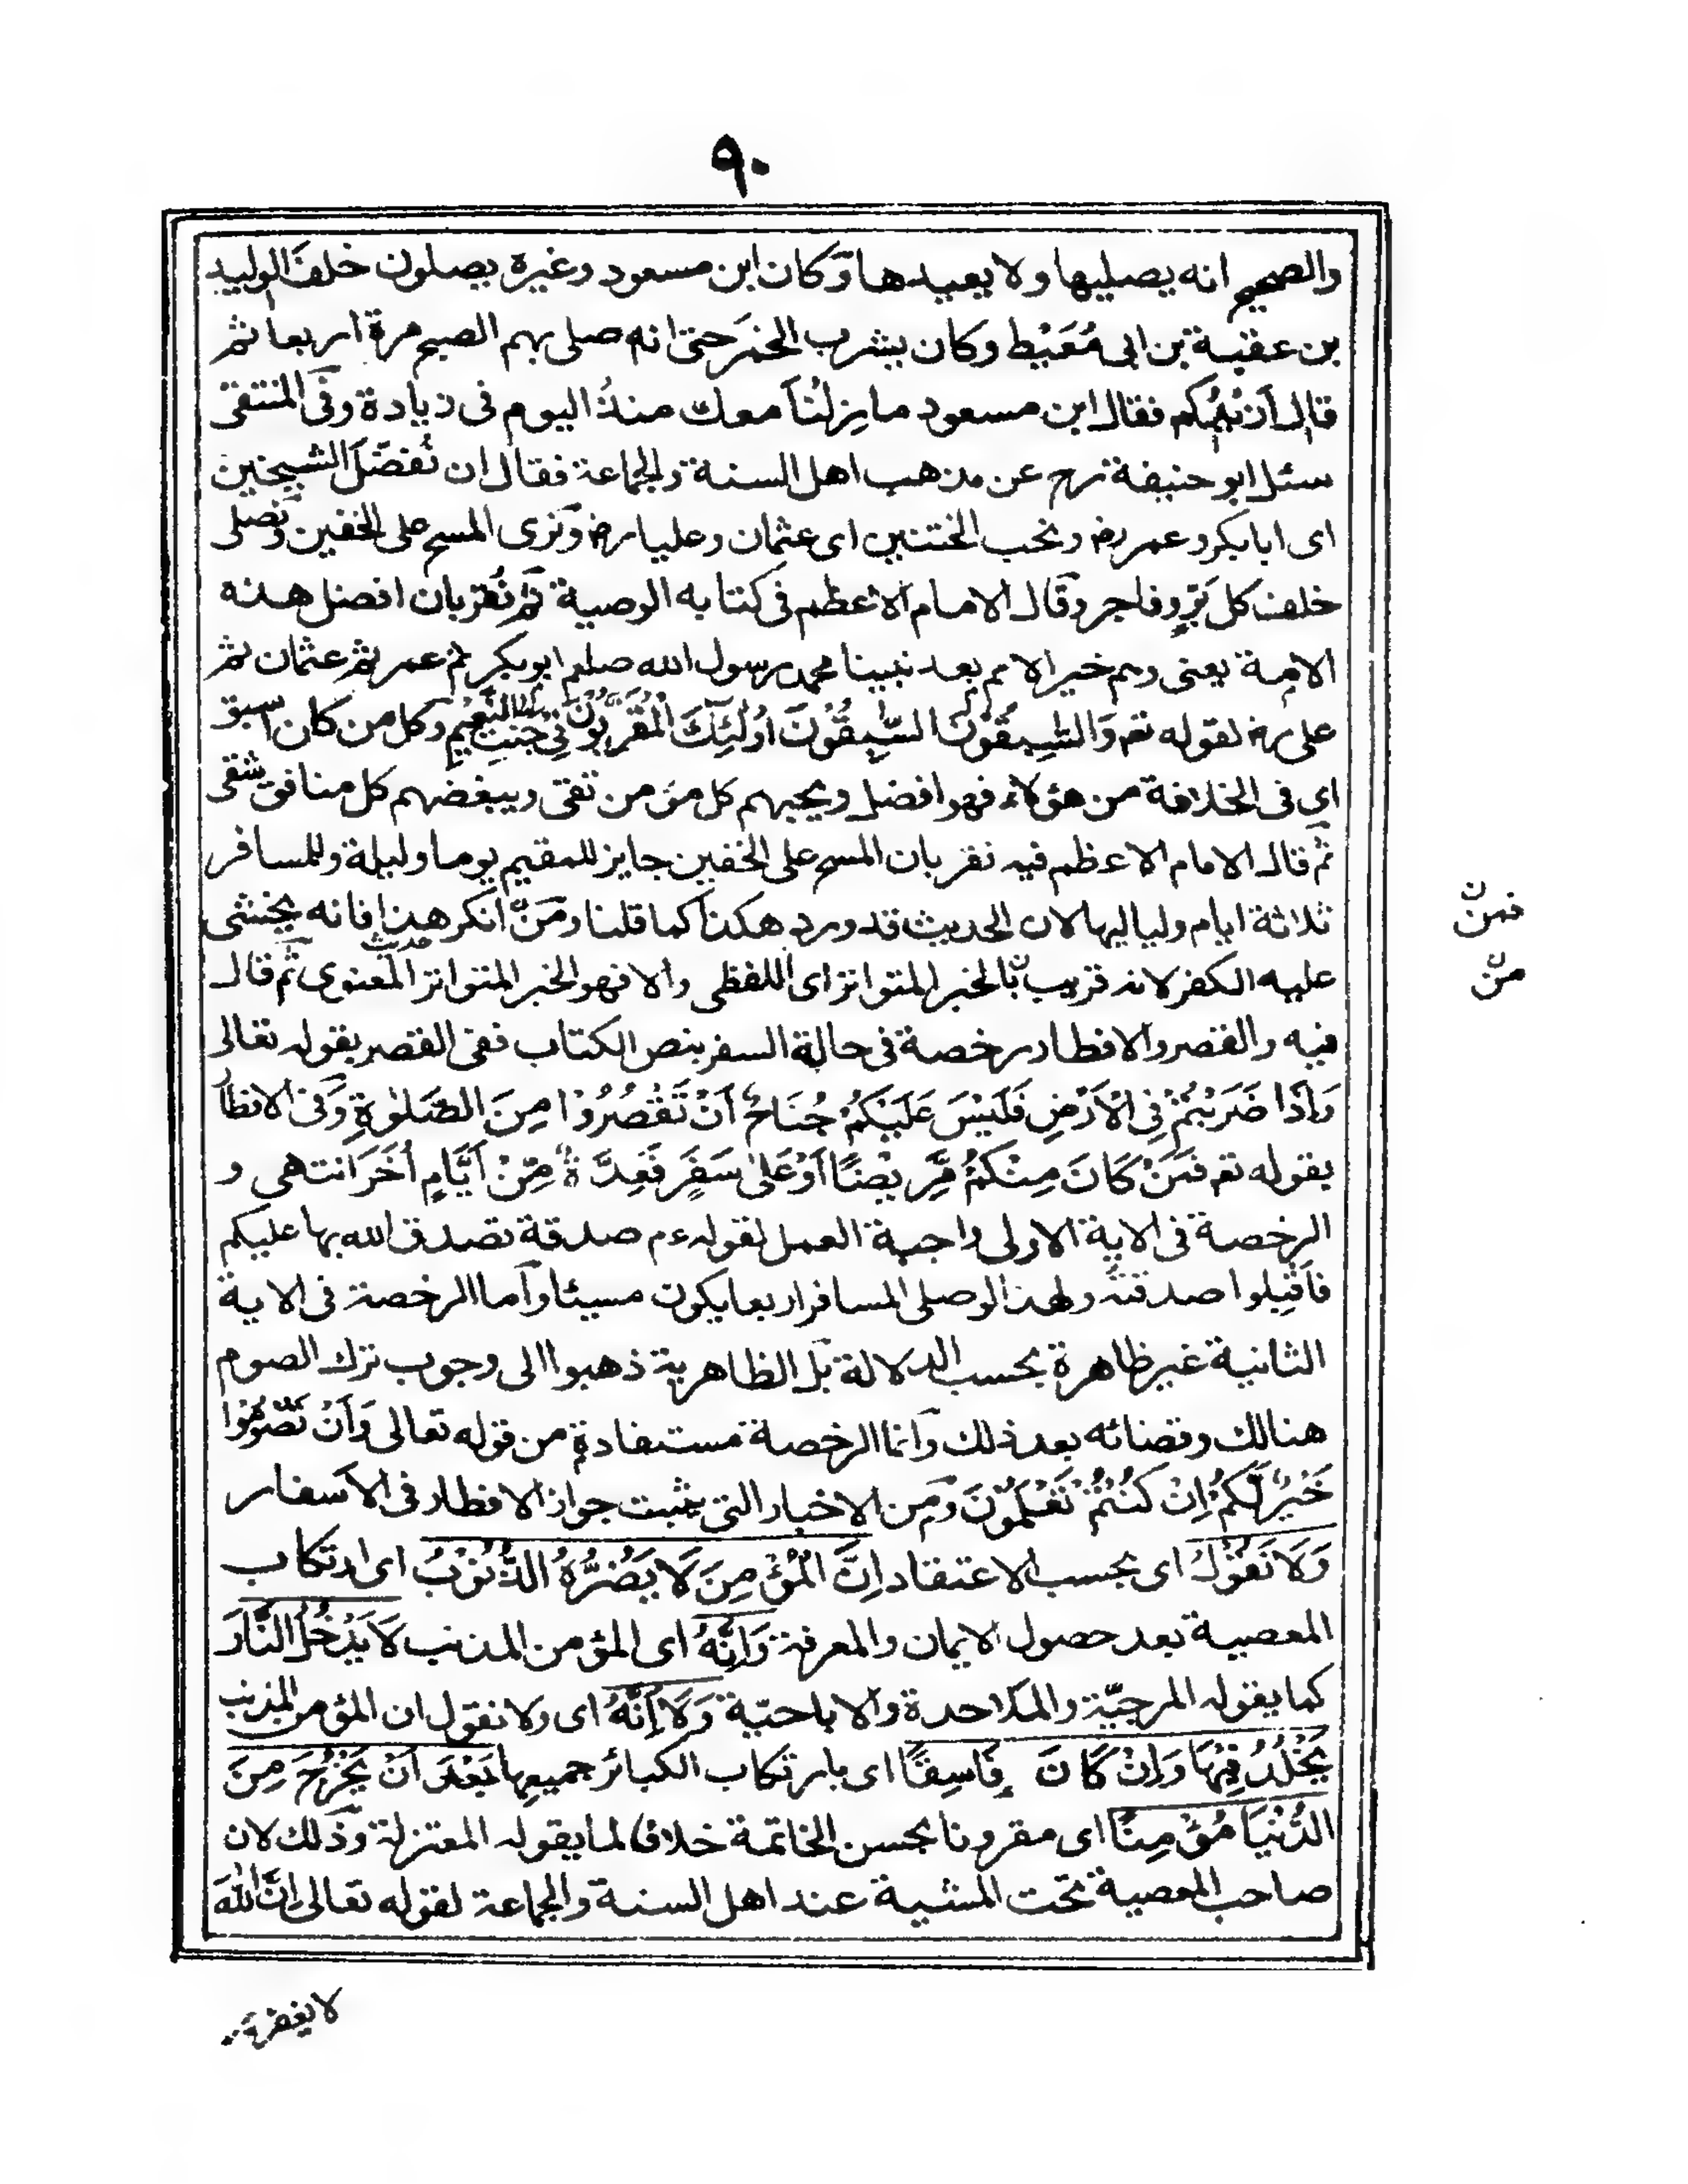 ٩٠
والصحيح انه يصليها ولا يعيدها وكان ابن مسعود وغيره يصلون خلف الوليد
بن عقبة بن ابى مُعَيْط وكان يشرب الخمر حتى انه صلى بهم الصبح مرة اربعا ثم
قال أزيدكم فقال ابن مسعود ما زلنا معك منذ اليوم فى زيادة وفى المنتقى
سئل ابو حنيفة رح عن مذهب اهل السنة والجماعة فقال ان نُفضّل الشيخين
اى ابا بكر وعمر رض ونحب الختنين اى عثمان وعليا رض ونرى المسح على الخفين ونصلى
خلف كل بَرٍّ وفاجر وقال الامام الاعظم فى كتابه الوصية ثم نُقر بان افضل هذه
الامة يعنى وهم خير الامم بعد نبينا محمد رسول الله صلعم ابو بكر ثم عمر ثم عثمان ثم
على رض لقوله تع وَالسّٰبِقُوْنَ السّٰبِقُوْنَ اُولٰٓئِكَ الْمُقَرَّبُوْنَ فِيْ جَنّٰتِ النَّعِيْمِ وكل من كان اسبق
اي فى الخلافة من هؤلاء فهو افضل ويحبهم كل مؤمن تقى ويبغضهم كل منافق شقى
ثم قال الامام الاعظم فيه نقر بان المسح على الخفين جايز للمقيم يوما وليلة وللمسافر
ثلاثة ايام ولياليها لان الحديث قد ورد هكذا كما قلنا ومَن انكر هذا فانه يخشى
فمن
عليه الكفر لانه قريب بالخبر المتواتر اى اللفظى والا فهو الخبر المتواتر المعنوى ثم قال
من
فيه والقصر والافطار رخصة فى حالة السفر بنص الكتاب ففى القصر بقوله تعالى
وَاِذَا ضَرَبْتُمْ فِى الْاَرْضِ فَلَيْسَ عَلَيْكُمْ جُنَاحٌ اَنْ تَقْصُرُوْا مِنَ الصَّلٰوةِ وَفى الافطار
بقوله تع فَمَنْ كَانَ مِنْكُمْ مَّرِيْضًا اَوْ عَلٰى سَفَرٍ فَعِدَّةٌ مِّنْ اَيَّامٍ اُخَرَ انتهى و
الرخصة فى الاية الاولى واجبة العمل لقوله ءم صدقة تصدق الله بها عليكم
فاقبلوا صدقته ولهذا لو صلى المسافر اربعا يكون مسيئا واما الرخصة فى الاية
الثانية غير ظاهرة بحسب الدلالة بل الظاهرية ذهبوا الى وجوب ترك الصوم
هنالك وقضائه بعد ذلك وانما الرخصة مستفادة من قوله تعالى وَاَنْ تَصُوْمُوْا
خَيْرٌ لَّكُمْ اِنْ كُنْتُمْ تَعْلَمُوْنَ ومن الاخبار التى تثبت جواز الافطار فى الاسفار
وَلَا نَقُوْلُ اى بحسب الاعتقاد اِنَّ الْمُؤْمِنَ لَا يَضُرُّهُ الذُّنُوْبُ اى ارتكاب
المعصية بعد حصول الايمان والمعرفة وَاِنَّهُ اى المؤمن المذنب لَا يَدْخُلُ النَّارَ
كما يقوله المرجيّة والملاحدة والاباحيّة وَلَا اِنَّهُ اى ولا نقول ان المؤمن المذنب
يَخْلُدُ فِيْهَا وَاِنْ كَانَ فَاسِقًا اى بارتكاب الكبائر جميعها بَعْدَ اَنْ يَّخْرُجَ مِنَ
الدُّنْيَا مُؤْمِنًا اى مقرونا بحسن الخاتمة خلافا لما يقوله المعتزلة وذلك لان
صاحب المعصية تحت المشية عند اهل السنة والجماعة لقوله تعالى اِنَّ اللّٰهَ
لا يغفر